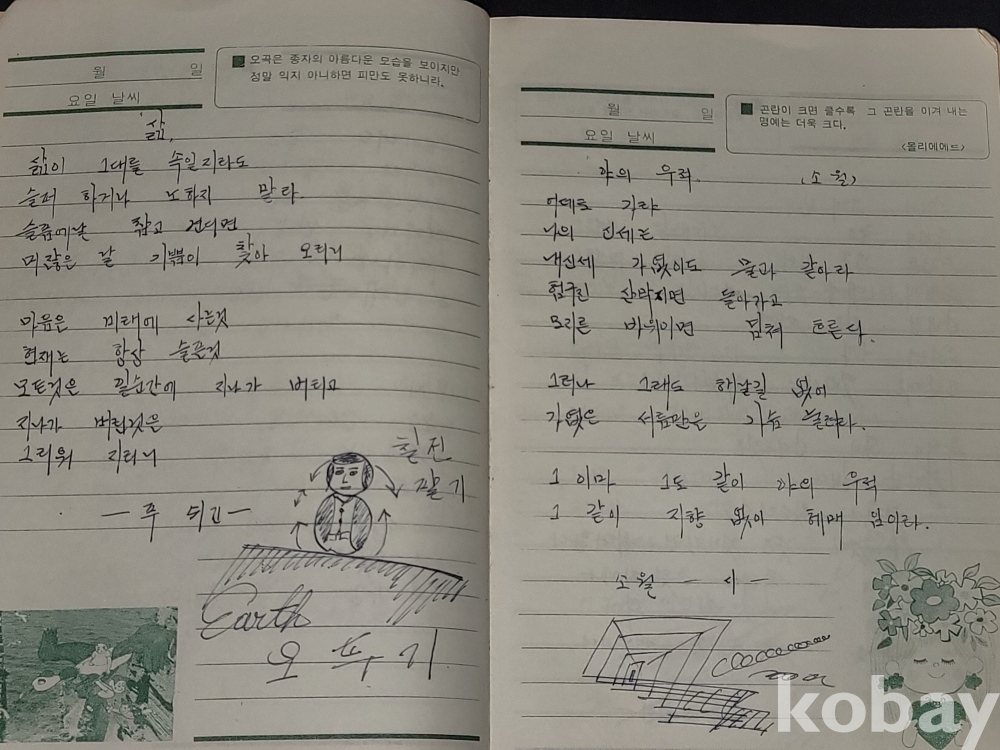 월 일
요일 날씨
오곡은 종자의 아름다운 모습을 보이지만
정말 익지 아니하면 피만도 못하니라.
삶.
삶이 그대를 속일지라도
슬퍼 하거나 노하지 말라.
슬픔에날 참고 견디면
머잖은 날 기쁨이 찾아 오리니
마음은 미래에 사는것
현재는 항상 슬픈것
모든것은 일순간에 지나가 버리고
지나가 버림것은
그리워 지리니
칠전
팔기
Earth
오뚜기
월 일
요일 날씨
곤란이 크면 클수록 그 곤란을 이겨 내는
멍에는 더욱 크다.
<몰리에에드>
야의 우적 (소월)
어데로 가랴
나의 신세는
내신세 가엾이도 물과 같아라
험구진 산막지면 돌아가고
모리른 바위이면 넘쳐 흐른다.
그러나 그래도 헤날길 없어
가엾은 서름만은 가슴 눌러라.
그 이마 그도 같이 야의 우적
그 같이 지향 없이 헤매 임이라.
소월 - 시 -
kobay